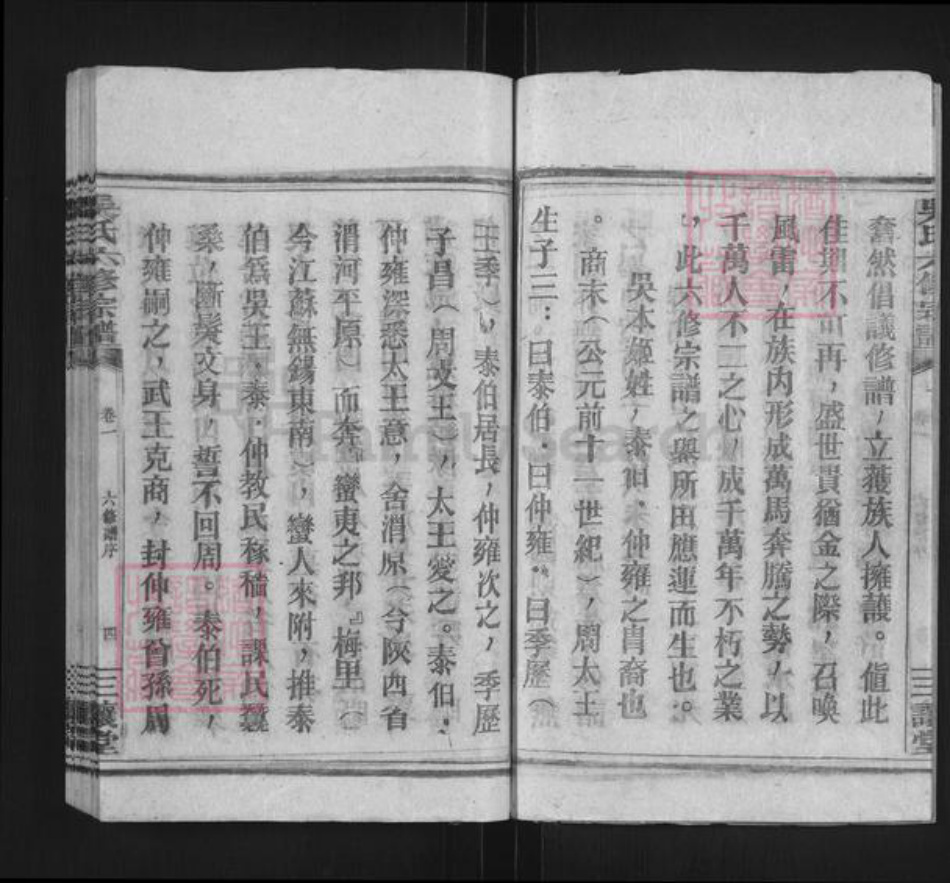 奮然倡議修譜，立獲族人擁護。值此
佳期不可再，盛世貴猶金之際，召喚
風雷，在族內形成萬馬奔騰之勢，以
千萬人不二之心，成千萬年不朽之業
，此六修宗譜之舉所由應運而生也。
吳本姬姓，泰伯．仲雍之胄裔也
。商末（公元前十一世紀），周太王
生子三：曰泰伯．曰仲雍．曰季歷（
王季），泰伯居長，仲雍次之，季歷
子昌（周文王），太王愛之。泰伯．
仲雍深悉太王意，舍渭原（今陝西省
渭河平原）而奔『蠻夷之邦』梅里（
今江蘇無錫東南），蠻人來附，推泰
伯爲吳王。泰．仲教民稼穡，課民蠶
桑，斷髮文身，誓不回周。泰伯死，
仲雍嗣之，武王克商，封仲雍曾孫周
吳氏六修宗譜
卷一
六修譜序
四
三讓堂
FamilySearch